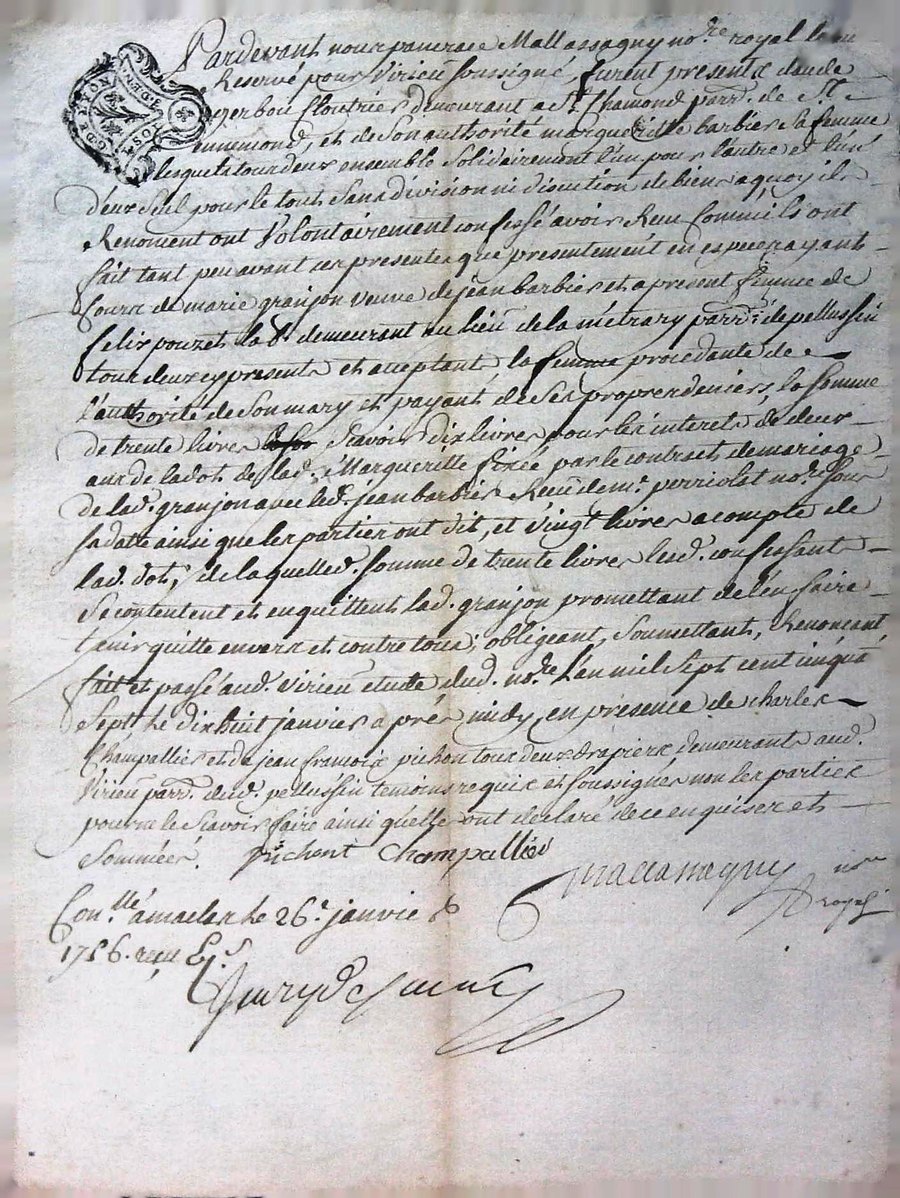 GG LYON
Pardevant nous pancrace Mallassagny no.re royal
Reservé pour Virieu soussigné, furent presents claude
gerbou cloutrier demeurant a St. Chamond parr. de St.
ennemond, et de son authorité margueritte barbier sa femme
lesquels tous deux ensemble solidairement l'un pour l'autre et l'un
d'eux seul pour le tout sans division ni discution de biens a quoy ils
Renoncent ont Volontairement confessé avoir Reçu Comm'ils ont
fait tant peu avant ces presentes que presentement en especes ayants
cours de marie granjon veuve de jean barbier et a present femme de
felix pouzet la d. demeurant au lieu de la métrary parr. de pellussin
tous deux cy presents et acceptant la femme procedante de
l'authorité de son mary et payant de ses propres deniers, la somme
de trente livres Scavoir dix livres pour les interets de deux
ans de la dot de lad. Margueritte fixée par le contract de mariage
de lad. granjon avec led. jean barbier Reçu de me. perriolat no.re sous
sa datte ainsi que les parties ont dit, et vingt livres a compte de
lad. dot, de laquelle d. somme de trente livres lesd. confessants
se contentent et en quittent lad. granjon promettant de l'en faire
tenir quitte envers et contre tous; obligeant, Soumettant, Renonçant
fait et passé aud. Virieu etude dud. no.re l'an mil sept cent cinqua
sept, le dix huit janvier aprés midy, en présence de charles
Champallier et de jean françois pichon tous deux drapiers demeurants aud.
Virieu parr. dud. pellussin temoins requis et soussignés non les parties
pour ne le scavoir faire ainsi qu'elles ont declaré de ce enquises et
sommées. Pichont Champallier
Mallassagny no.re
royal
Con.llé a maclas le 26.e janvier
reçu